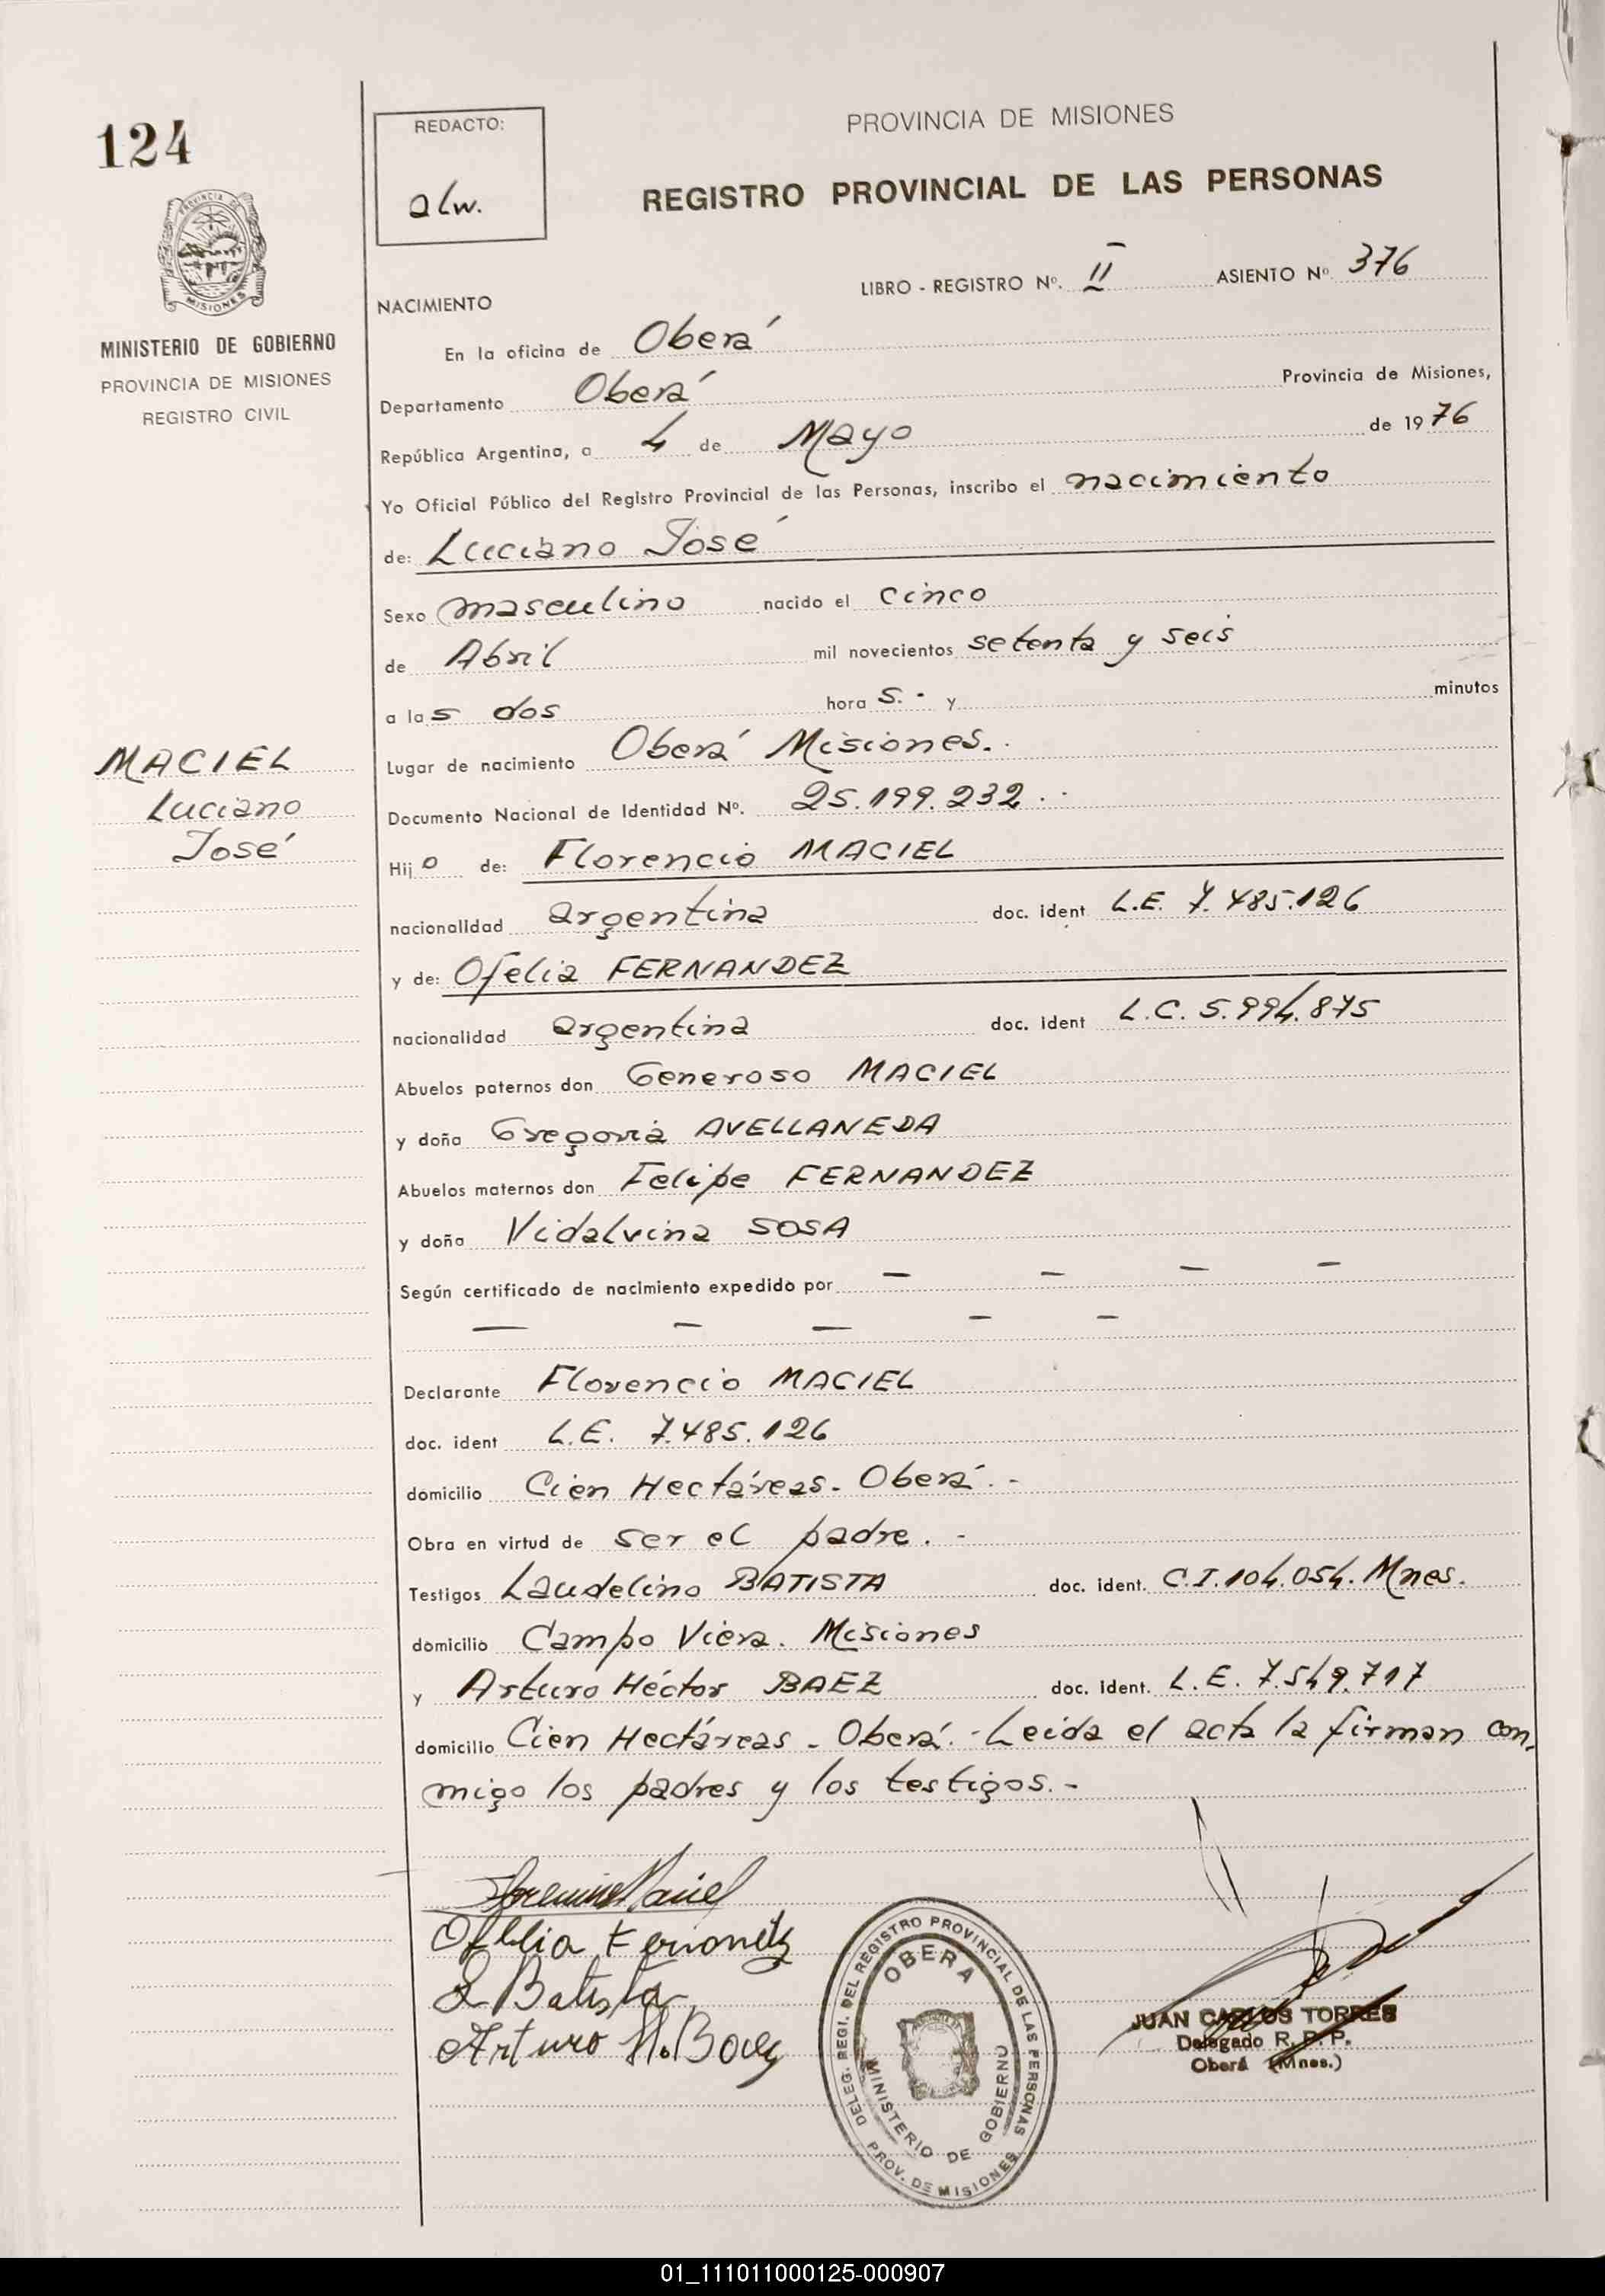 124
PROVINCIA DE MISIONES
MINISTERIO DE GOBIERNO
PROVINCIA DE MISIONES
REGISTRO CIVIL
REDACTO:
alw.
PROVINCIA DE MISIONES
REGISTRO PROVINCIAL DE LAS PERSONAS
LIBRO - REGISTRO Nº. II ASIENTO Nº 376
NACIMIENTO
En la oficina de Oberá
Departamento Oberá Provincia de Misiones,
República Argentina, a 4 de Mayo de 1976
Yo Oficial Público del Registro Provincial de las Personas, inscribo el nacimiento
de: Luciano José
Sexo masculino nacido el cinco
de Abril mil novecientos setenta y seis
a las dos hora s.- y minutos
MACIEL
Luciano
José
Lugar de nacimiento Oberá Misiones.-
Documento Nacional de Identidad Nº. 25.199.232.-
Hijo de: Florencio MACIEL
nacionalidad argentina doc. ident L.E. 7.485.126
y de: Ofelia FERNANDEZ
nacionalidad argentina doc. ident L.C. 5.994.875
Abuelos paternos don Generoso MACIEL
y doña Gregoria AVELLANEDA
Abuelos maternos don Felipe FERNANDEZ
y doña Vidalvina SOSA
Según certificado de nacimiento expedido por — — — —
— — — — —
Declarante Florencio MACIEL
doc. ident L.E. 7.485.126
domicilio Cien Hectáreas - Oberá.-
Obra en virtud de ser el padre.-
Testigos Laudelino BATISTA doc. ident. C.I.104.054. Mnes.
domicilio Campo Viera. Misiones
y Arturo Héctor BAEZ doc. ident. L.E. 7.549.717
domicilio Cien Hectáreas - Oberá.- Leida el acta la firman con-
migo los padres y los testigos.-
Florencio Maciel
Ofelia Fernandez
L Batista
Arturo H. Baez
DELEG. REGI. DEL REGISTRO PROVINCIAL DE LAS PERSONAS
OBERA
MINISTERIO DE GOBIERNO
PROV. DE MISIONES
JUAN CARLOS TORRES
Delegado R. P. P.
Oberá (Mnes.)
01_111011000125-000907